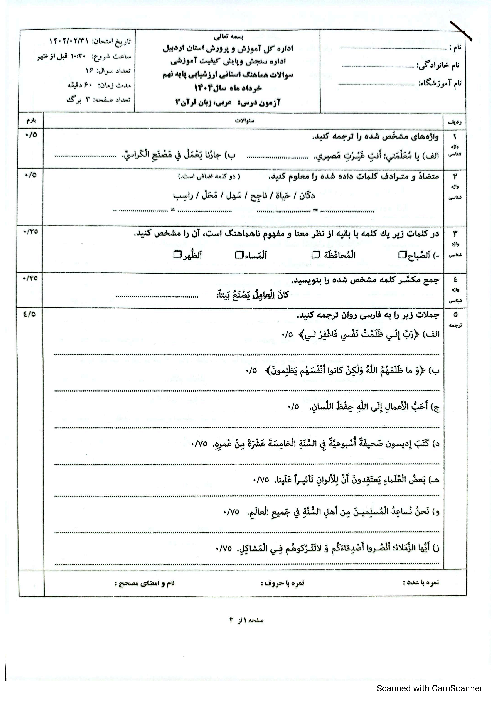 بسمه تعالی
نام :
نام خانوادگی:
نام آموزشگاه:
اداره کل آموزش و پرورش استان اردبیل
اداره سنجش و پایش کیفیت آموزشی
سوالات هماهنگ استانی ارزشیابی پایه نهم
خرداد ماه سال ۱۴۰۴
آزمون درس: عربی، زبان قرآن ۳
تاریخ امتحان: ۱۴۰۴/۰۲/۳۱
ساعت شروع: ۱۰:۳۰ قبل از ظهر
تعداد سوال: ۱۶
مدت زمان: ۶۰ دقیقه
تعداد صفحه: ۳ برگ
ردیف سئوالات بارم
۱ واژه شناسی واژه‌های مشخص شده را ترجمه کنید. ۰/۵
الف) یا مُعَلِّمَتي؛ أنتِ غَیَّرتِ مَصیري. ............ ب) جارُنا یَعْمَلُ في مَصْنَعِ الْکَراسيِّ. ............
۲ واژه شناسی متضادّ و مترادف کلمات داده شده را معلوم کنید. ( دو کلمه اضافی است.) ۰/۵
دکّان / حَیاة / ناجِح / سَهل / مَحَلّ / راسِب
............ = ............ ............ ≠ ............
۳ واژه شناسی در کلمات زیر یك کلمه با بقیه از نظر معنا و مفهوم ناهماهنگ است، آن را مشخص کنید. ۰/۲۵
-) اَلصَّباح☐ اَلْمُحافَظَة ☐ اَلْمَساء☐ اَلظُّهر☐
٤ واژه شناسی جمع مکسّر کلمه مشخص شده را بنویسید. ۰/۲۵
کانَ الْعامِلُ یَصْنَعُ بَیتاً: ............
۵ ترجمه جملات زیر را به فارسی روان ترجمه کنید. ٤/۵
الف) ﴿رَبِّ إنّـي ظَلَمْتُ نَفْسي فَاغْفِرْ لـي﴾ ۰/۵
ب) ﴿وَ ما ظَلَمَهُمُ اللّٰهُ وَلٰکِنْ کانوا أنْفُسَهُم یَظلِمونَ﴾ ۰/۵
ج) أحَبُّ الْأعمالِ إلَی اللّٰهِ حِفْظُ اللِّسانِ. ۰/۵
د) کَتَبَ إدیسون صَحیفَةً أُسْبوعیَّةً فِي السَّنَةِ الْخامِسَةَ عَشْرَةَ مِنْ عُمرِهِ. ۰/۷۵
هـ) بَعضُ الْعُلَماءِ یَعتَقِدونَ أنَّ لِلْألوانِ تَأثیـراً عَلَینا. ۰/۷۵
و) نَحنُ نُساعِدُ الْمُسلِمیـنَ مِن أهلِ السُّنَّةِ في جَمیعِ الْعالَمِ. ۰/۷۵
ز) أیُّها الزُّمَلاءُ؛ اُنْصُروا أصْدِقاءَکُم وَ لاتَتْـرُکوهُم فِـي الْمَشاکِلِ. ۰/۷۵
نمره با عدد : نمره با حروف : نام و امضای مصحح :
صفحه ۱ از ۳
Scanned with CamScanner